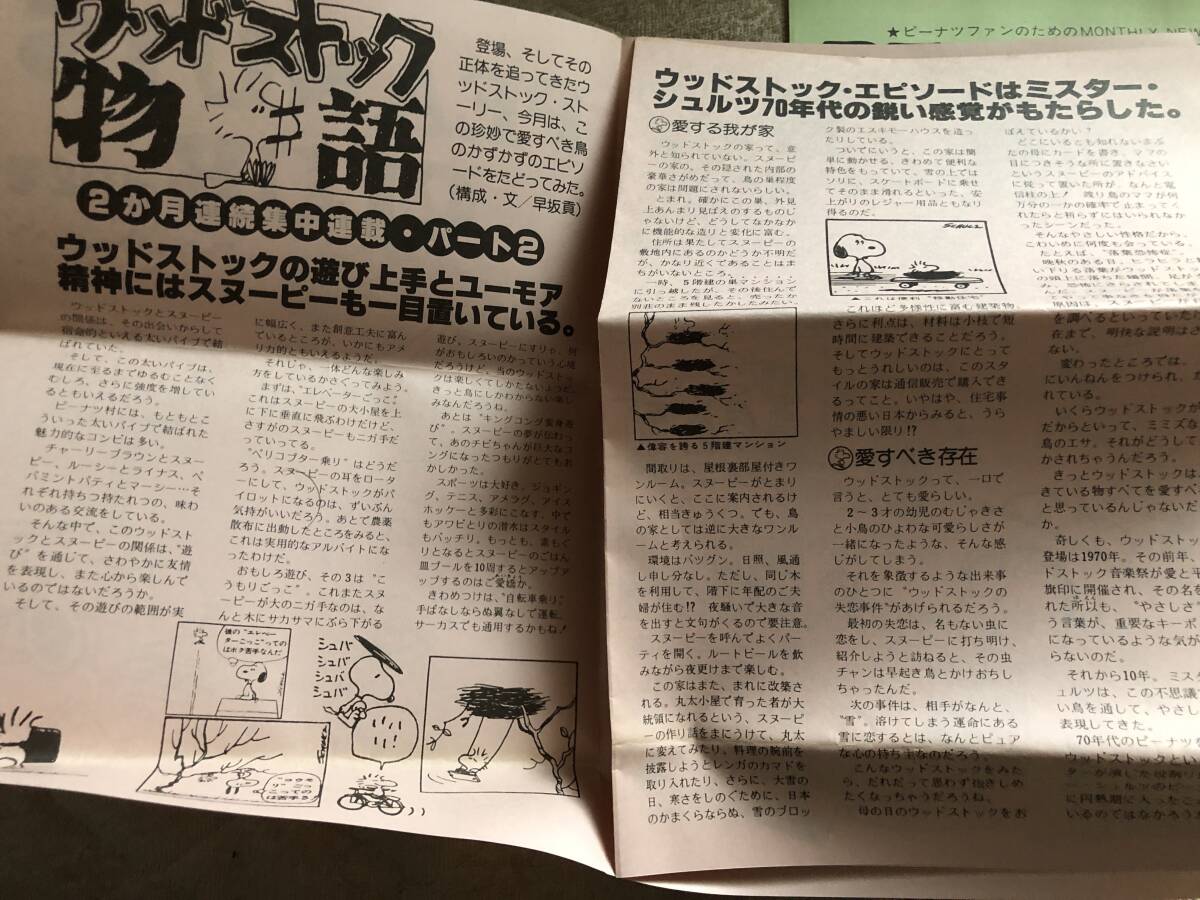 ウッドストック
物語
登場、そしてその
正体を追ってきたウ
ッドストック・スト
ーリー、今月は、こ
の珍妙で愛すべき鳥
のかずかずのエピソ
ードをたどってみた。
(構成・文／早坂貢)
2か月連続集中連載・パート2
ウッドストックの遊び上手とユーモア
精神にはスヌーピーも一目置いている。
ウッドストックとスヌーピー
の関係は、その出会いからして
宿命的といえる太いパイプで結
ばれていた。
そして、この太いパイプは、
現在に至るまでゆるむことなく
むしろ、さらに強度を増してい
るともいえるだろう。
ピーナツ村には、もともとこ
ういった太いパイプで結ばれた
魅力的なコンビは多い。
チャーリーブラウンとスヌー
ピー、ルーシーとライナス、ペ
パミントパティとマーシー…そ
れぞれ持ちつ持たれつの、味わ
いのある交流をしている。
そんな中で、このウッドスト
ックとスヌーピーの関係は、“遊
び”を通じて、さわやかに友情
を表現し、また心から楽しんで
いるのではないだろうか。
そして、その遊びの範囲が実
に幅広く、また創意工夫に富ん
でいるところが、いかにもアメ
リカ的ともいえるようだ。
それじゃ、一体どんな楽しみ
方をしているかさぐってみよう。
まずは、“エレベーターごっこ”
これはスヌーピーの犬小屋を上
に下に垂直に飛ぶわけだけど、
さすがのスヌーピーもニガ手だ
っていってる。
“ペリコプター乗り”はどうだ
ろう。スヌーピーの耳をロータ
ーにして、ウッドストックがパ
イロットになるのは、ずいぶん
気持がいいだろう。あとで農薬
散布に出動したところをみると、
これは実用的なアルバイトにな
ったわけだ。
おもしろ遊び、その3は“こ
うもりごっこ”。これまたスヌ
ーピーが大のニガ手なのは、な
んと木にサカサマにぶら下がる
遊び。スヌーピーにすりゃ、何
がおもしろいのかっていう心境
だろうけど、当のウッドストッ
クは楽しくてしかたないようだ。
きっと鳥にしかわからない楽し
みなんだろうね。
あとは“キングコング変身遊
び”。スヌーピーの夢が伝わっ
て、あのチビちゃんが巨大なコ
ングになったつもりがとてもお
かしかった。
スポーツは大好き。ジョギン
グ、テニス、アメラグ、アイス
ホッケーと多彩にこなす。中で
もアワビとりの潜水はスタイル
もバッチリ。もっとも、素もぐ
りとなるとスヌーピーのごはん
皿プールを10周するとアップア
ップするのはご愛嬌か。
きわめつけは、“自転車乗り”
手ばなしならぬ翼なしで運転。
サーカスでも通用するかもね！
後の“エレベー
ターごっこ”っての
はボク苦手なんだ
シュバ
シュバ
シュバ
シュバ
い！
SCHULZ
★ピーナツファンのためのMONTHLY NEW
ウッドストック・エピソードはミスター・
シュルツ70年代の鋭い感覚がもたらした。
愛する我が家
ウッドストックの家って、意
外と知られていない。スヌーピ
ーの家の、その隠された内部の
豪華さがめだって、鳥の巣程度
の家は問題にされないらしい。
とまれ、確かにこの巣、外見
上あんまり見ばえのするものじ
ゃないけど、どうしてなかなか
に機能的な造りと変化に富む。
住所は果たしてスヌーピーの
敷地内にあるのかどうか不明だ
が、かなり近くであることはま
ちがいないところ。
一時、5階建の巣マンション
に引っ越したが、その後住んで
ないところを見ると、売ったか
▲偉容を誇る5階建マンション
間取りは、屋根裏部屋付きワ
ンルーム。スヌーピーがとまり
にいくと、ここに案内されるけ
ど、相当きゅうくつ。でも、鳥
の家としては逆に大きなワンル
ームと考えられる。
環境はバツグン。日照、風通
し申し分なし。ただし、同じ木
を利用して、階下に年配のご夫
婦が住む!? 夜騒いで大きな音
を出すと文句がくるので要注意。
スヌーピーを呼んでよくパー
ティを開く。ルートビールを飲
みながら夜更けまで楽しむ。
この家はまた、まれに改築さ
れる。丸太小屋で育った者が大
統領になれるという、スヌーピ
ーの作り話をまにうけて、丸太
に変えてみたり、料理の腕前を
披露しようとレンガのカマドを
取り入れたり、さらに、大雪の
日、寒さをしのぐために、日本
のかまくらならぬ、雪のブロッ
ク製のエスキモーハウスを造っ
たりしている。
ついでにいうと、この家は簡
単に動かせる、きわめて便利な
特色をもっていて、雪の上では
ソリに、スケートボードに乗せ
てそのまま滑れるといった、安
上がりのレジャー用品ともなり
得るのだ。
SCHULZ
▲これは便利“移動住宅”
これほど多様性に富む建築物、
さらに利点は、材料は小枝で短
時間に建築できることだろう。
そしてウッドストックにとって
もっとうれしいのは、このスタ
イルの家は通信販売で購入でき
るってこと。いやはや、住宅事
情の悪い日本からみると、うら
やましい限り!?
愛すべき存在
ウッドストックって、一口で
言うと、とても愛らしい。
2〜3才の幼児のむじゃきさ
と小鳥のひよわな可愛らしさが
一緒になったような、そんな感
じがしてしまう。
それを象徴するような出来事
のひとつに“ウッドストックの
失恋事件”があげられるだろう。
最初の失恋は、名もない虫に
恋をし、スヌーピーに打ち明け、
紹介しようと訪ねると、その虫
チャンは早起き鳥とかけおちし
ちゃったんだ。
次の事件は、相手がなんと、
“雪”。溶けてしまう運命にある
雪に恋するとは、なんとピュア
な心の持ち主なのだろう。
こんなウッドストックをみた
ら、だれだって思わず抱きしめ
たくなっちゃうだろうね。
母の日のウッドストックをお
ぼえているかい？
どこにいるとも知れないまぶ
たの母にカードを書き、ママの
目につきそうな所に置きなさい
というスヌーピーのアドバイス
に従って置いた所が、なんと電
信柱の上！ 渡り鳥のママが何
万分の一かの確率で止まってく
れたらと祈らずにはいられなか
ったシーンだった。
そんなやさしい性格だから、
こわいめに何度も会っている。
たとえば、“落葉恐怖症”
を調べるといっていた
在まで、明快な説明は
ない。
変わったところでは、
にいんねんをつけられ、た
れている。
いくらウッドストックが
だからといって、ミミズな
鳥のエサ。それがどうして
かされちゃうんだろう。
きっとウッドストックは
きている物すべてを愛すべ
と思っているんじゃないだ
か。
奇しくも、ウッドストッ
登場は1970年。その前年、
ドストック音楽祭が愛と平
旗印に開催され、その名を
れた所以も、“やさしさ
う言葉が、重要なキーポ
になっているような気が
らないのだ。
それから10年。ミスタ
ュルツは、この不思議
い鳥を通して、やさし
表現してきた。
70年代のピーナツを
ウッドストックとい